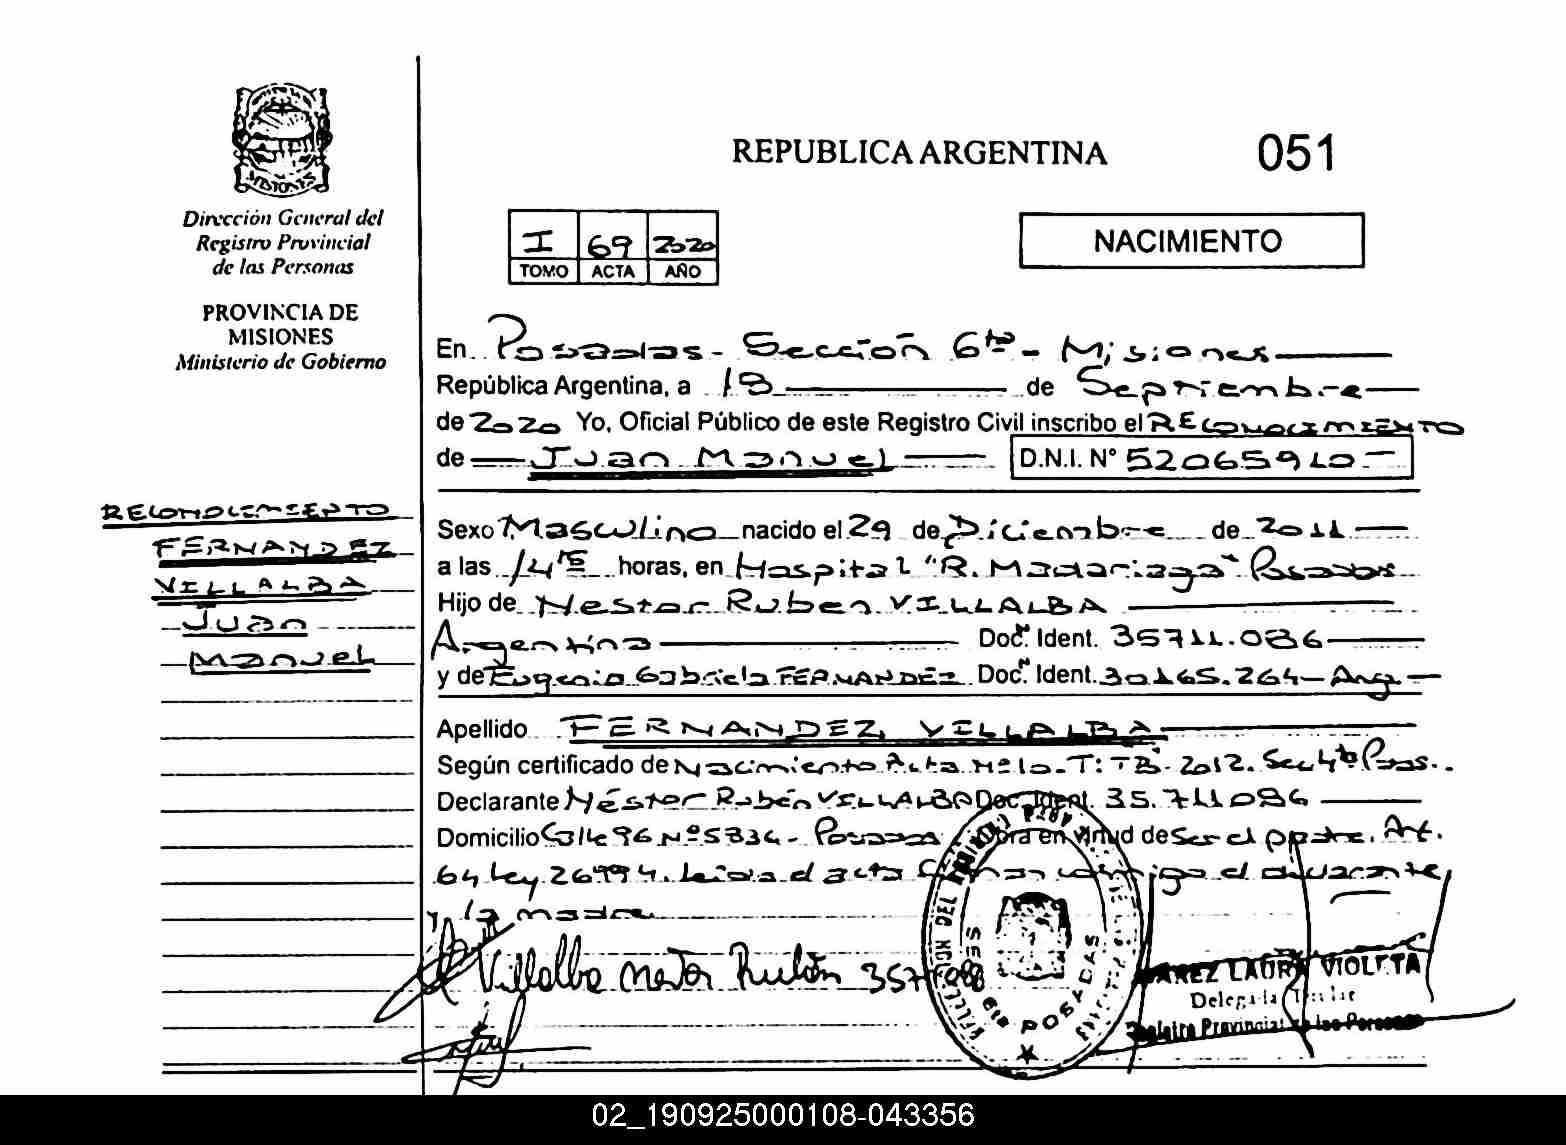 MISIONES
Dirección General del
Registro Provincial
de las Personas
PROVINCIA DE
MISIONES
Ministerio de Gobierno
REPUBLICA ARGENTINA
051
I 69 2020
TOMO ACTA AÑO
NACIMIENTO
En Posadas - Sección 6ta - Misiones
República Argentina, a 18 de Septiembre
de 2020 Yo, Oficial Público de este Registro Civil inscribo el RECONOCIMIENTO
de Juan Manuel D.N.I. N° 52065910
RECONOCIMIENTO
FERNANDEZ
VILLALBA
Juan
Manuel
Sexo Masculino nacido el 29 de Diciembre de 2011
a las 14 horas, en Hospital "R. Madariaga" Posadas
Hijo de Nestor Ruben VILLALBA
Argentina Doc. Ident. 35711.086
y de Eugenia Gabriela FERNANDEZ Doc. Ident. 30165.264 - Arg.
Apellido FERNANDEZ VILLALBA
Según certificado de Nacimiento Acta Nº 10 - T: - 2012. Sec 4ta Psas.
Declarante Néstor Rubén VILLALBA Doc. Ident. 35.711086
Domicilio 96 Nº 5834 - Posadas Obra en virtud de Ser el padre. Art.
64 Ley 26994. Leida el acta Firman conmigo el declarante
y la madre
Villalba Nestor Rubén
POSADAS
LAURA VIOLETA
Delegada Titular
Registro Provincial de las Personas
02_190925000108-043356